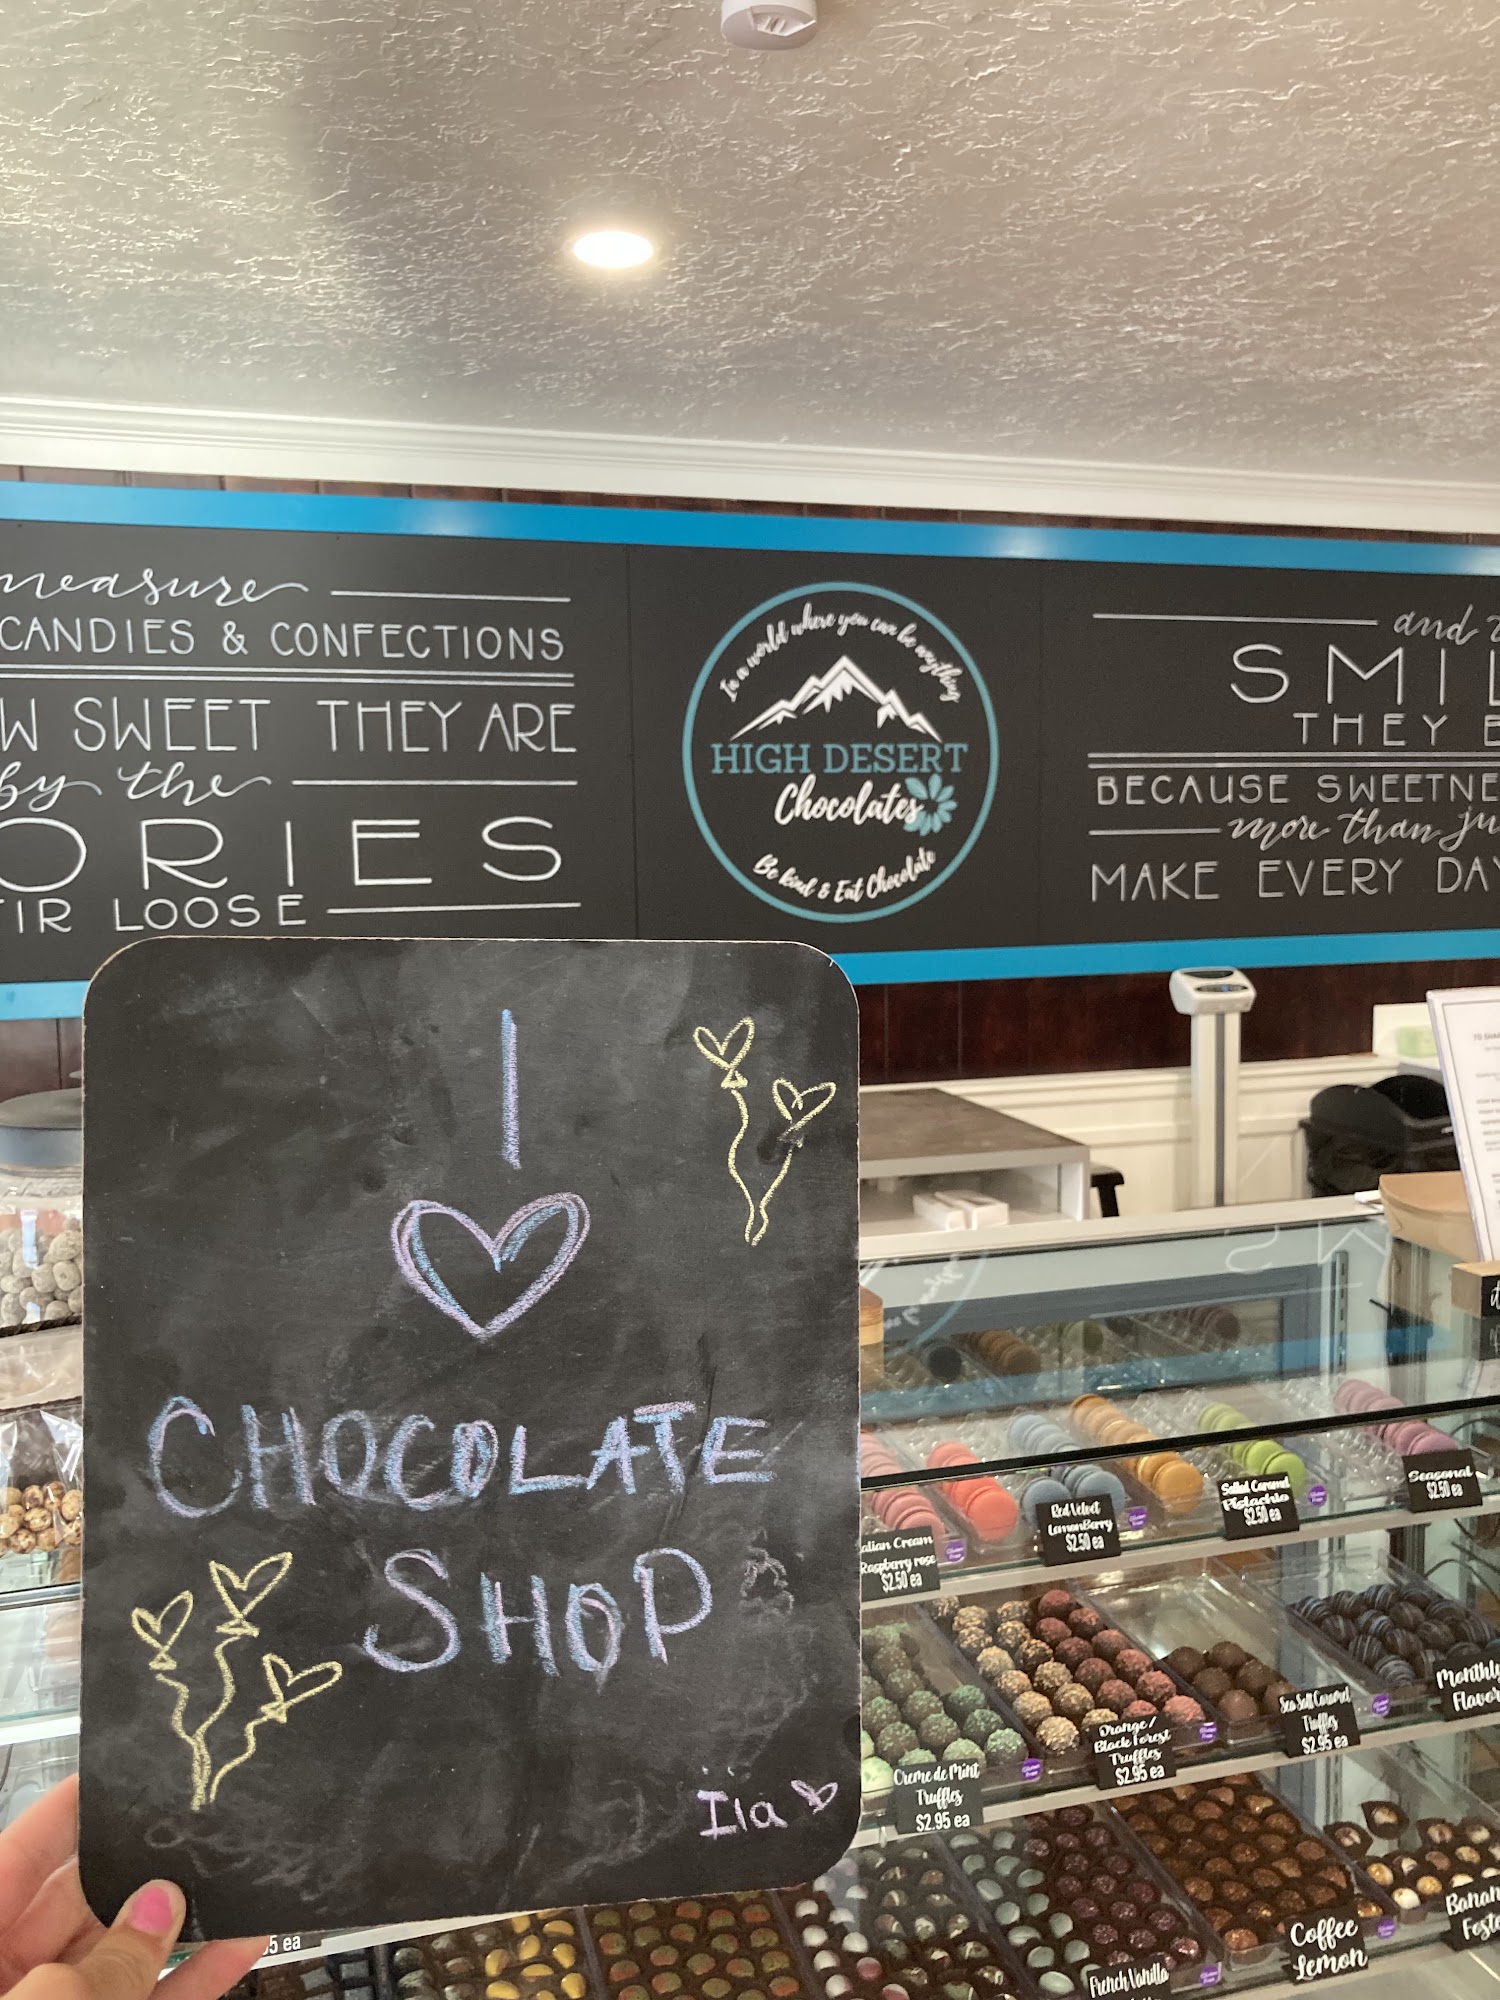 measure
CANDIES & CONFECTIONS
W SWEET THEY ARE
by the
ORIES
IR LOOSE
In a world where you can be anything
HIGH DESERT
Chocolates
Be kind & Eat Chocolate
and
SMIL
THEY E
BECAUSE SWEETNE
more than ju
MAKE EVERY DAY
I
CHOCOLATE
SHOP
Ila
TO SHA
Italian Cream
Raspberry rose
$2.50 ea
Red Velvet
LemonBerry
$2.50 ea
Salted Caramel
Pistachio
$2.50 ea
Seasonal
$2.50 ea
Creme de Mint
Truffles
$2.95 ea
Orange/
Black Forest
Truffles
$2.95 ea
Sea Salt Caramel
Truffles
$2.95 ea
Monthly
Flavor
5 ea
French Vanilla
Coffee
Lemon
Banan
Foste